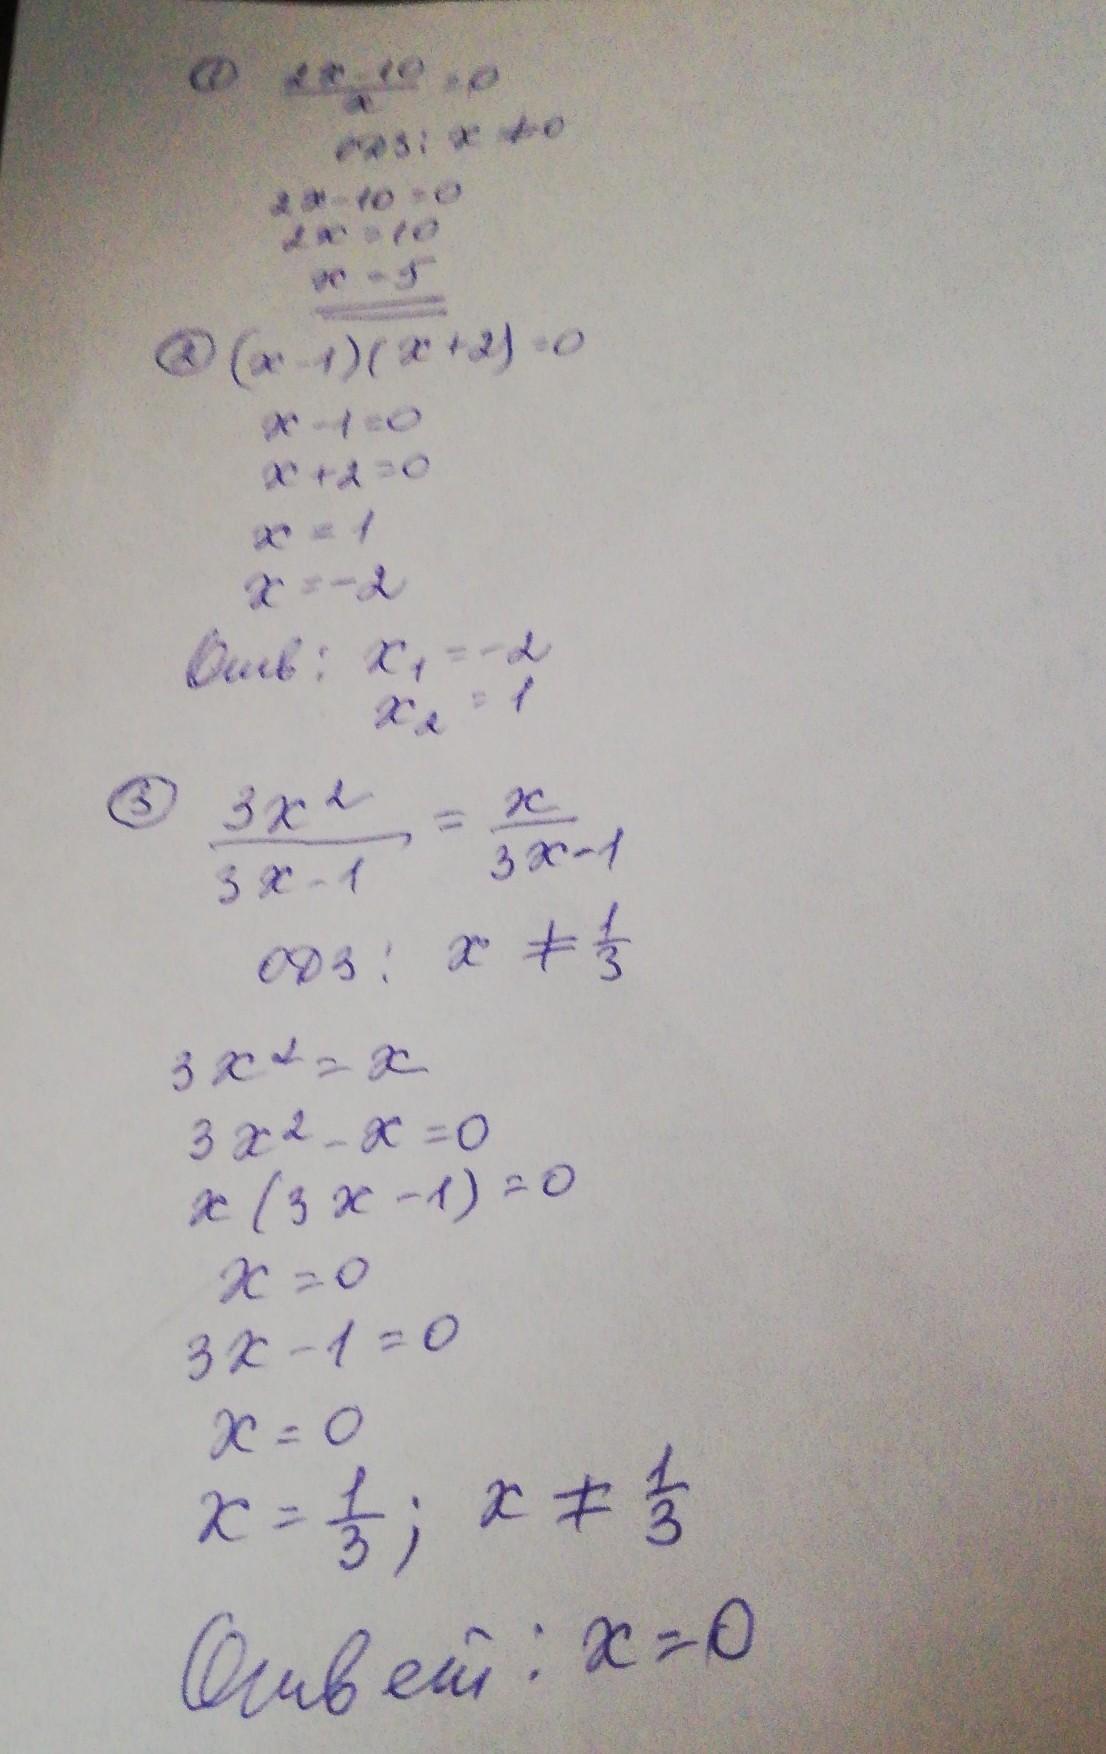 ① (2x-10)/x = 0
ОДЗ: x ≠ 0
2x-10=0
2x=10
x=5
② (x-1)(x+2)=0
x-1=0
x+2=0
x=1
x=-2
Отв: x₁=-2
x₂=1
③ 3x²/(3x-1) = x/(3x-1)
ОДЗ: x ≠ 1/3
3x²=x
3x²-x=0
x(3x-1)=0
x=0
3x-1=0
x=0
x=1/3; x≠1/3
Ответ: x=0